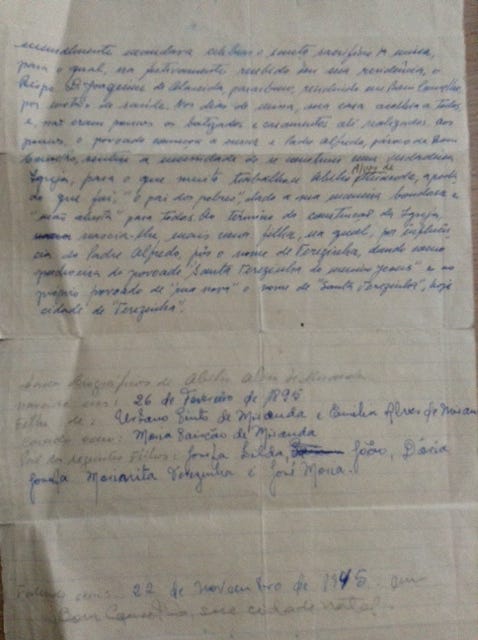 mensalmente mandava celebrar o santo sacrifício da missa,
para o qual, era festivamente recebido em sua residência, o
Bispo D. Joaquim de Almeida, paraibano, residindo em Bom Conselho,
por motivo de saúde. Nos dias de missa, sua casa acolhia a todos
e, não eram poucos os batizados e casamentos ali realizados. Aos
poucos, o povoado começou a crescer e Padre Alfredo, pároco de Bom
Conselho, sentiu a necessidade de se construir uma verdadeira
Igreja, para o que muito trabalhou Abilio Alves de Miranda,
do que foi, "o pai dos pobres", dado a sua maneira bondosa e
"mão aberta" para todos. Ao término da construção da Igreja,
nascia-lhe, mais uma filha, na qual, por influên
cia do Padre Alfredo, pôs o nome de Terezinha, dando como
padroeira do povoado "Santa Terezinha do menino Jesus" e ao
próprio povoado de "rua nova" o nome de "Santa Terezinha", hoje
cidade de "Terezinha".
Dados Biográficos de Abilio Alves de Miranda
nasceu em: 26 de Fevereiro de 1895
Filho de: Urbano Pinto de Miranda e Emilia Alves de Miranda
Casado com: Maria Paixão de Miranda
Pai dos seguintes filhos: Josefa Gilda, João, Dária
Josefa Margarita Terezinha e José Maria.
Faleceu em: 22 de novembro de 1945 em
Bom Conselho, sua cidade natal.